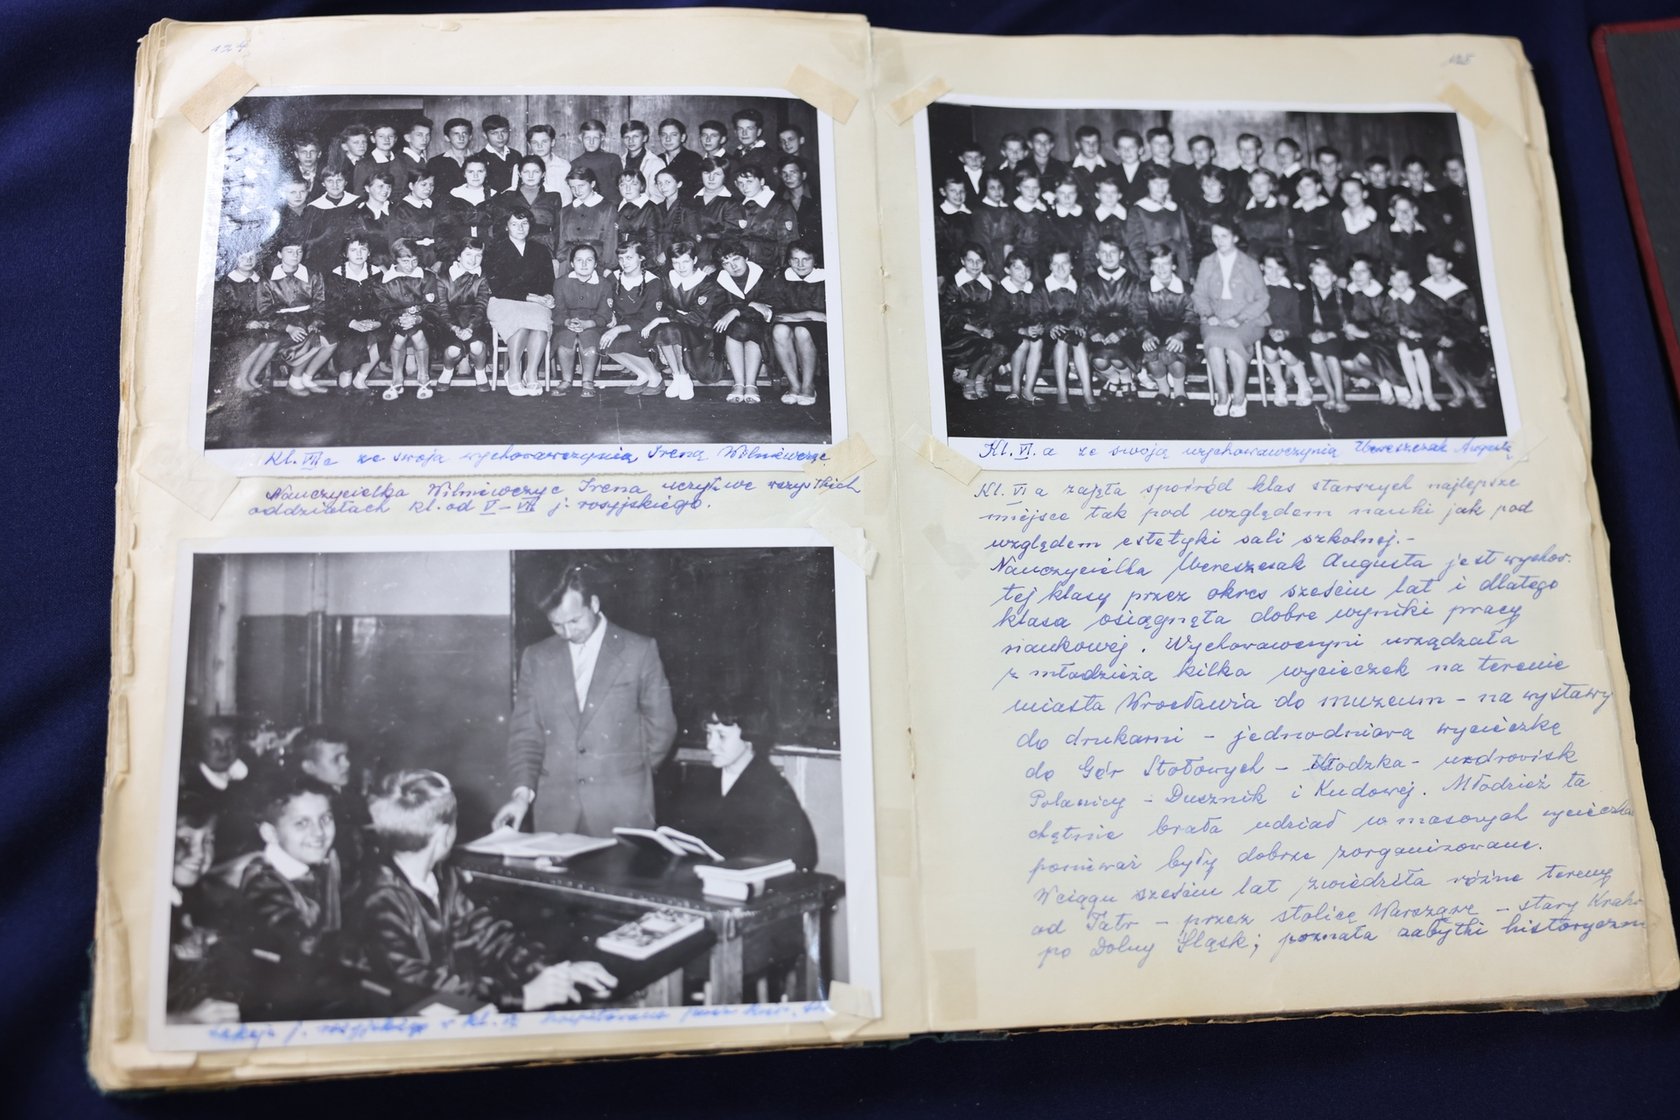 124
Kl. VII c ze swoją wychowawczynią Ireną Wilniewczyc
Nauczycielka Wilniewczyc Irena uczy we wszystkich
oddziałach kl. od V – VII j. rosyjskiego.
Lekcja j. rosyjskiego w kl.
125
Kl. VI a ze swoją wychowawczynią Wereszczak Augustą
Kl. VI a zajęła spośród klas starszych najlepsze
miejsce tak pod względem nauki jak pod
względem estetyki sali szkolnej. –
Nauczycielka Wereszczak Augusta jest wychow.
tej klasy przez okres sześciu lat i dlatego
klasa osiągnęła dobre wyniki pracy
naukowej. Wychowawczyni urządzała
z młodzieżą kilka wycieczek na terenie
miasta Wrocławia do muzeum – na wystawy
do drukarni – jednodniową wycieczkę
do Gór Stołowych – Kłodzka – uzdrowisk
Polanicy – Dusznik i Kudowej. Młodzież ta
chętnie brała udział w masowych wycieczkach
ponieważ były dobrze zorganizowane.
W ciągu sześciu lat zwiedziła różne tereny
od Tatr – przez stolicę Warszawę – stary Kraków
po Dolny Śląsk; poznała zabytki historyczne